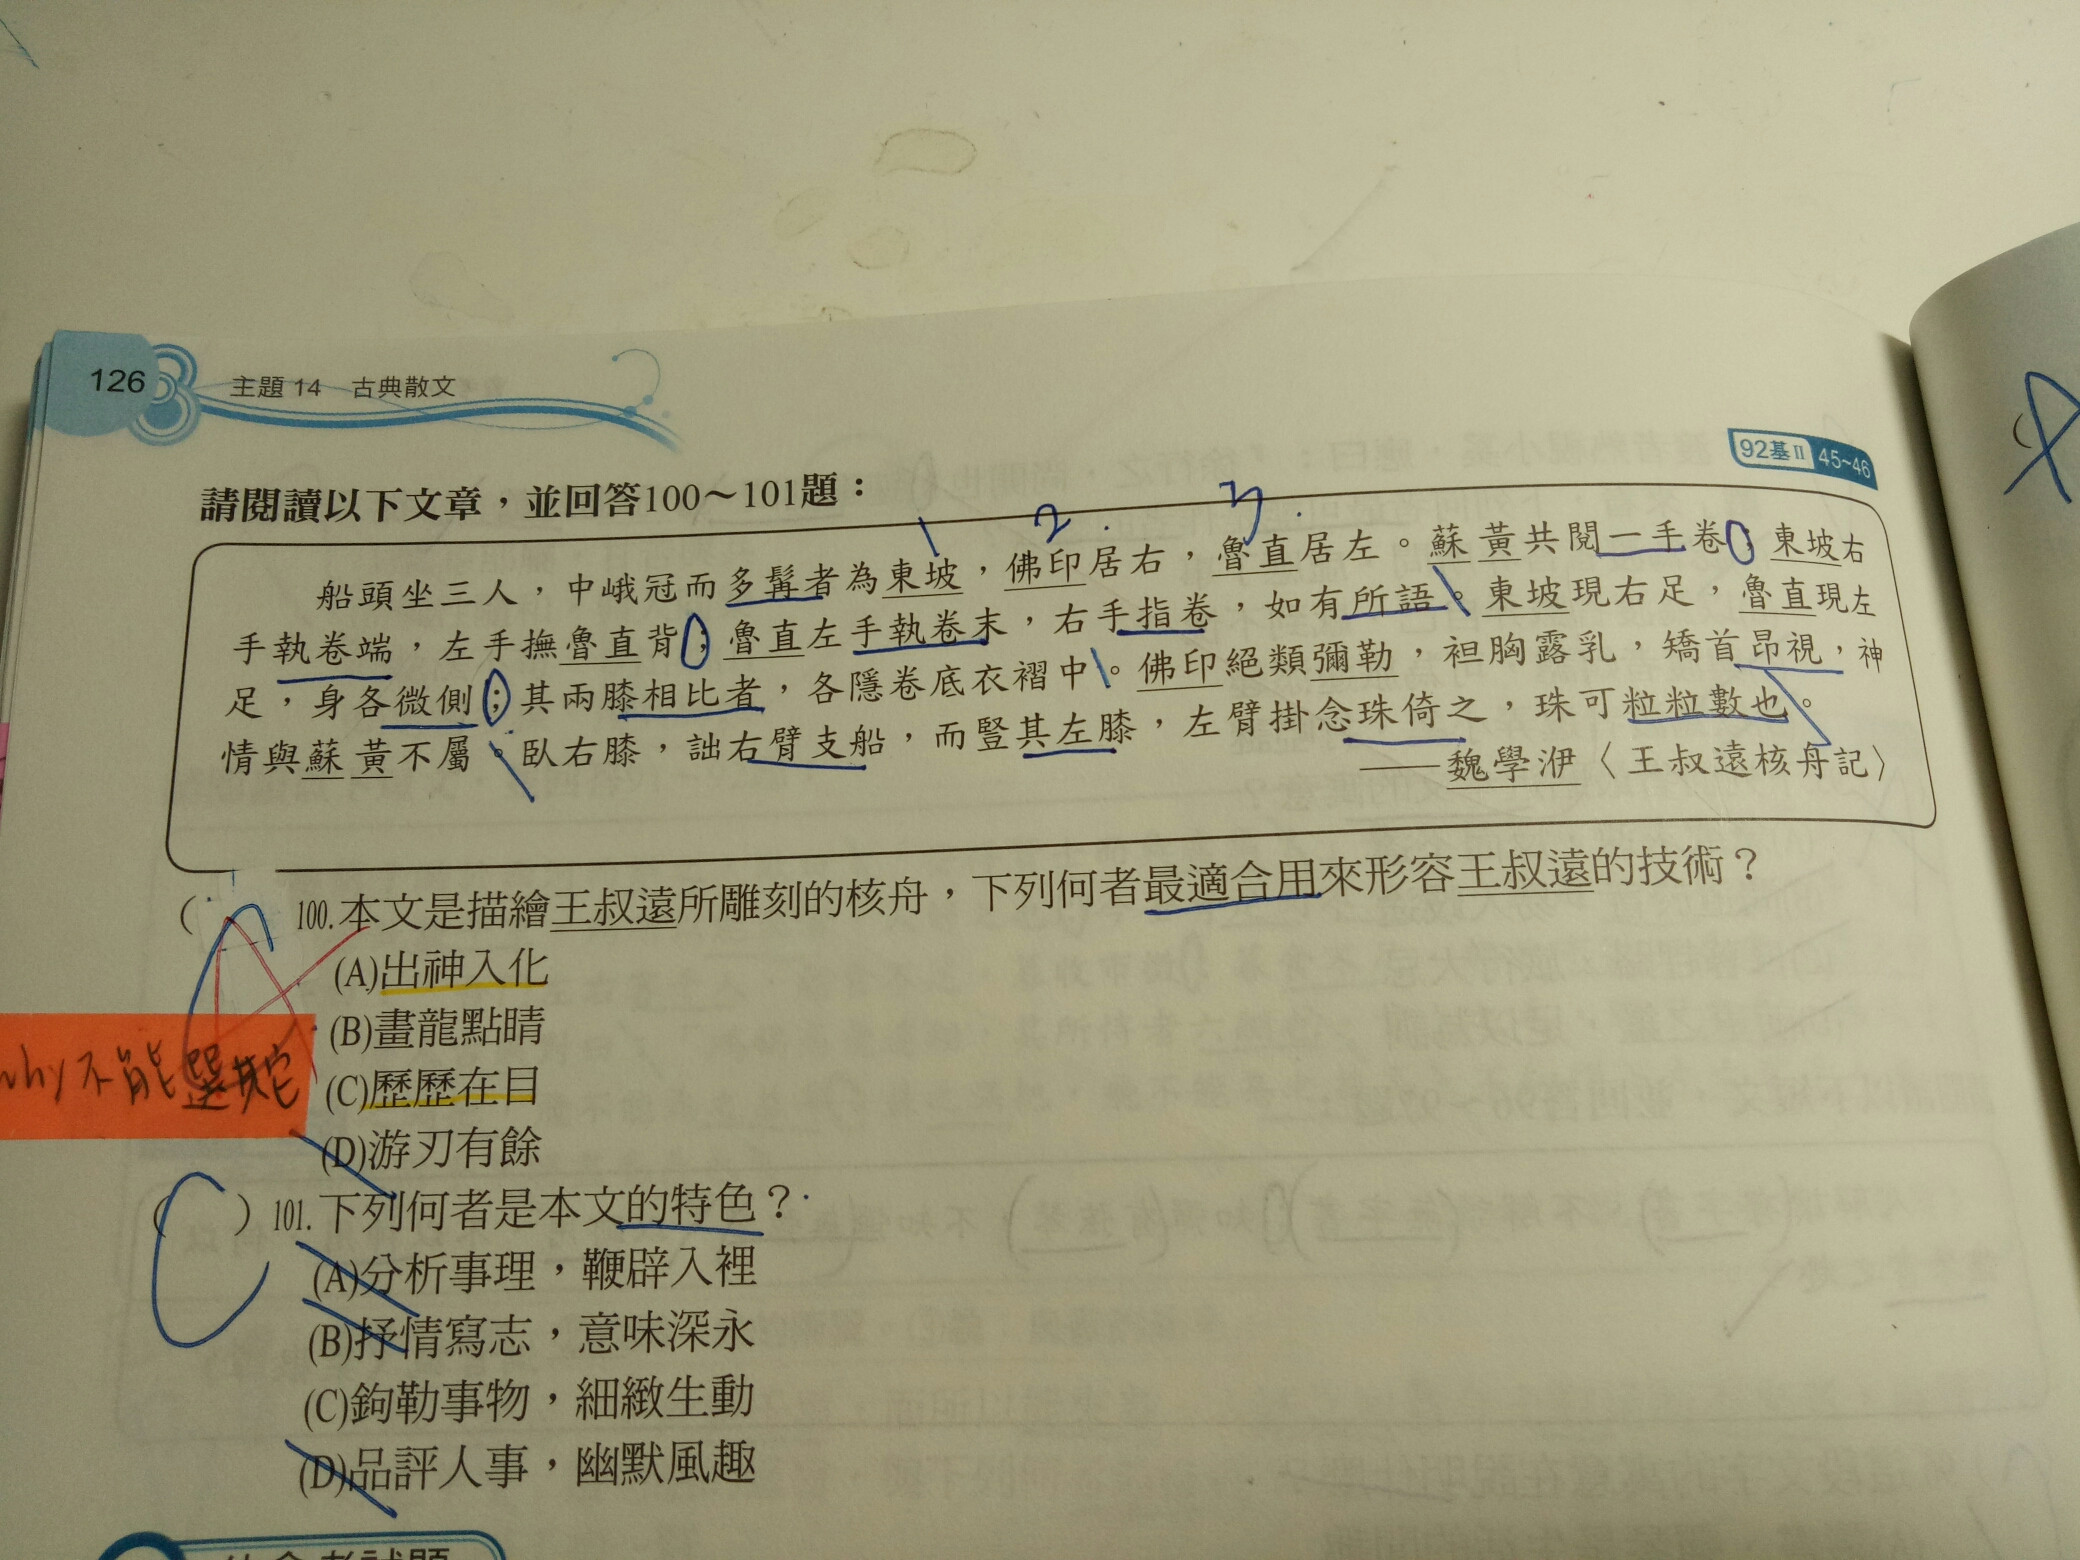 126
主題 14 古典散文
92基II 45~46
請閱讀以下文章，並回答100～101題：
1 2 3
船頭坐三人，中峨冠而多髯者為東坡，佛印居右，魯直居左。蘇黃共閱一手卷；東坡右
手執卷端，左手撫魯直背；魯直左手執卷末，右手指卷，如有所語。東坡現右足，魯直現左
足，身各微側；其兩膝相比者，各隱卷底衣褶中。佛印絕類彌勒，袒胸露乳，矯首昂視，神
情與蘇黃不屬。臥右膝，詘右臂支船，而豎其左膝，左臂掛念珠倚之，珠可粒粒數也。
——魏學洢〈王叔遠核舟記〉
( A 100.本文是描繪王叔遠所雕刻的核舟，下列何者最適合用來形容王叔遠的技術？
(A)出神入化
(B)畫龍點睛
why不能選其它
(C)歷歷在目
(D)游刃有餘
( C ) 101.下列何者是本文的特色？
(A)分析事理，鞭辟入裡
(B)抒情寫志，意味深永
(C)鉤勒事物，細緻生動
(D)品評人事，幽默風趣